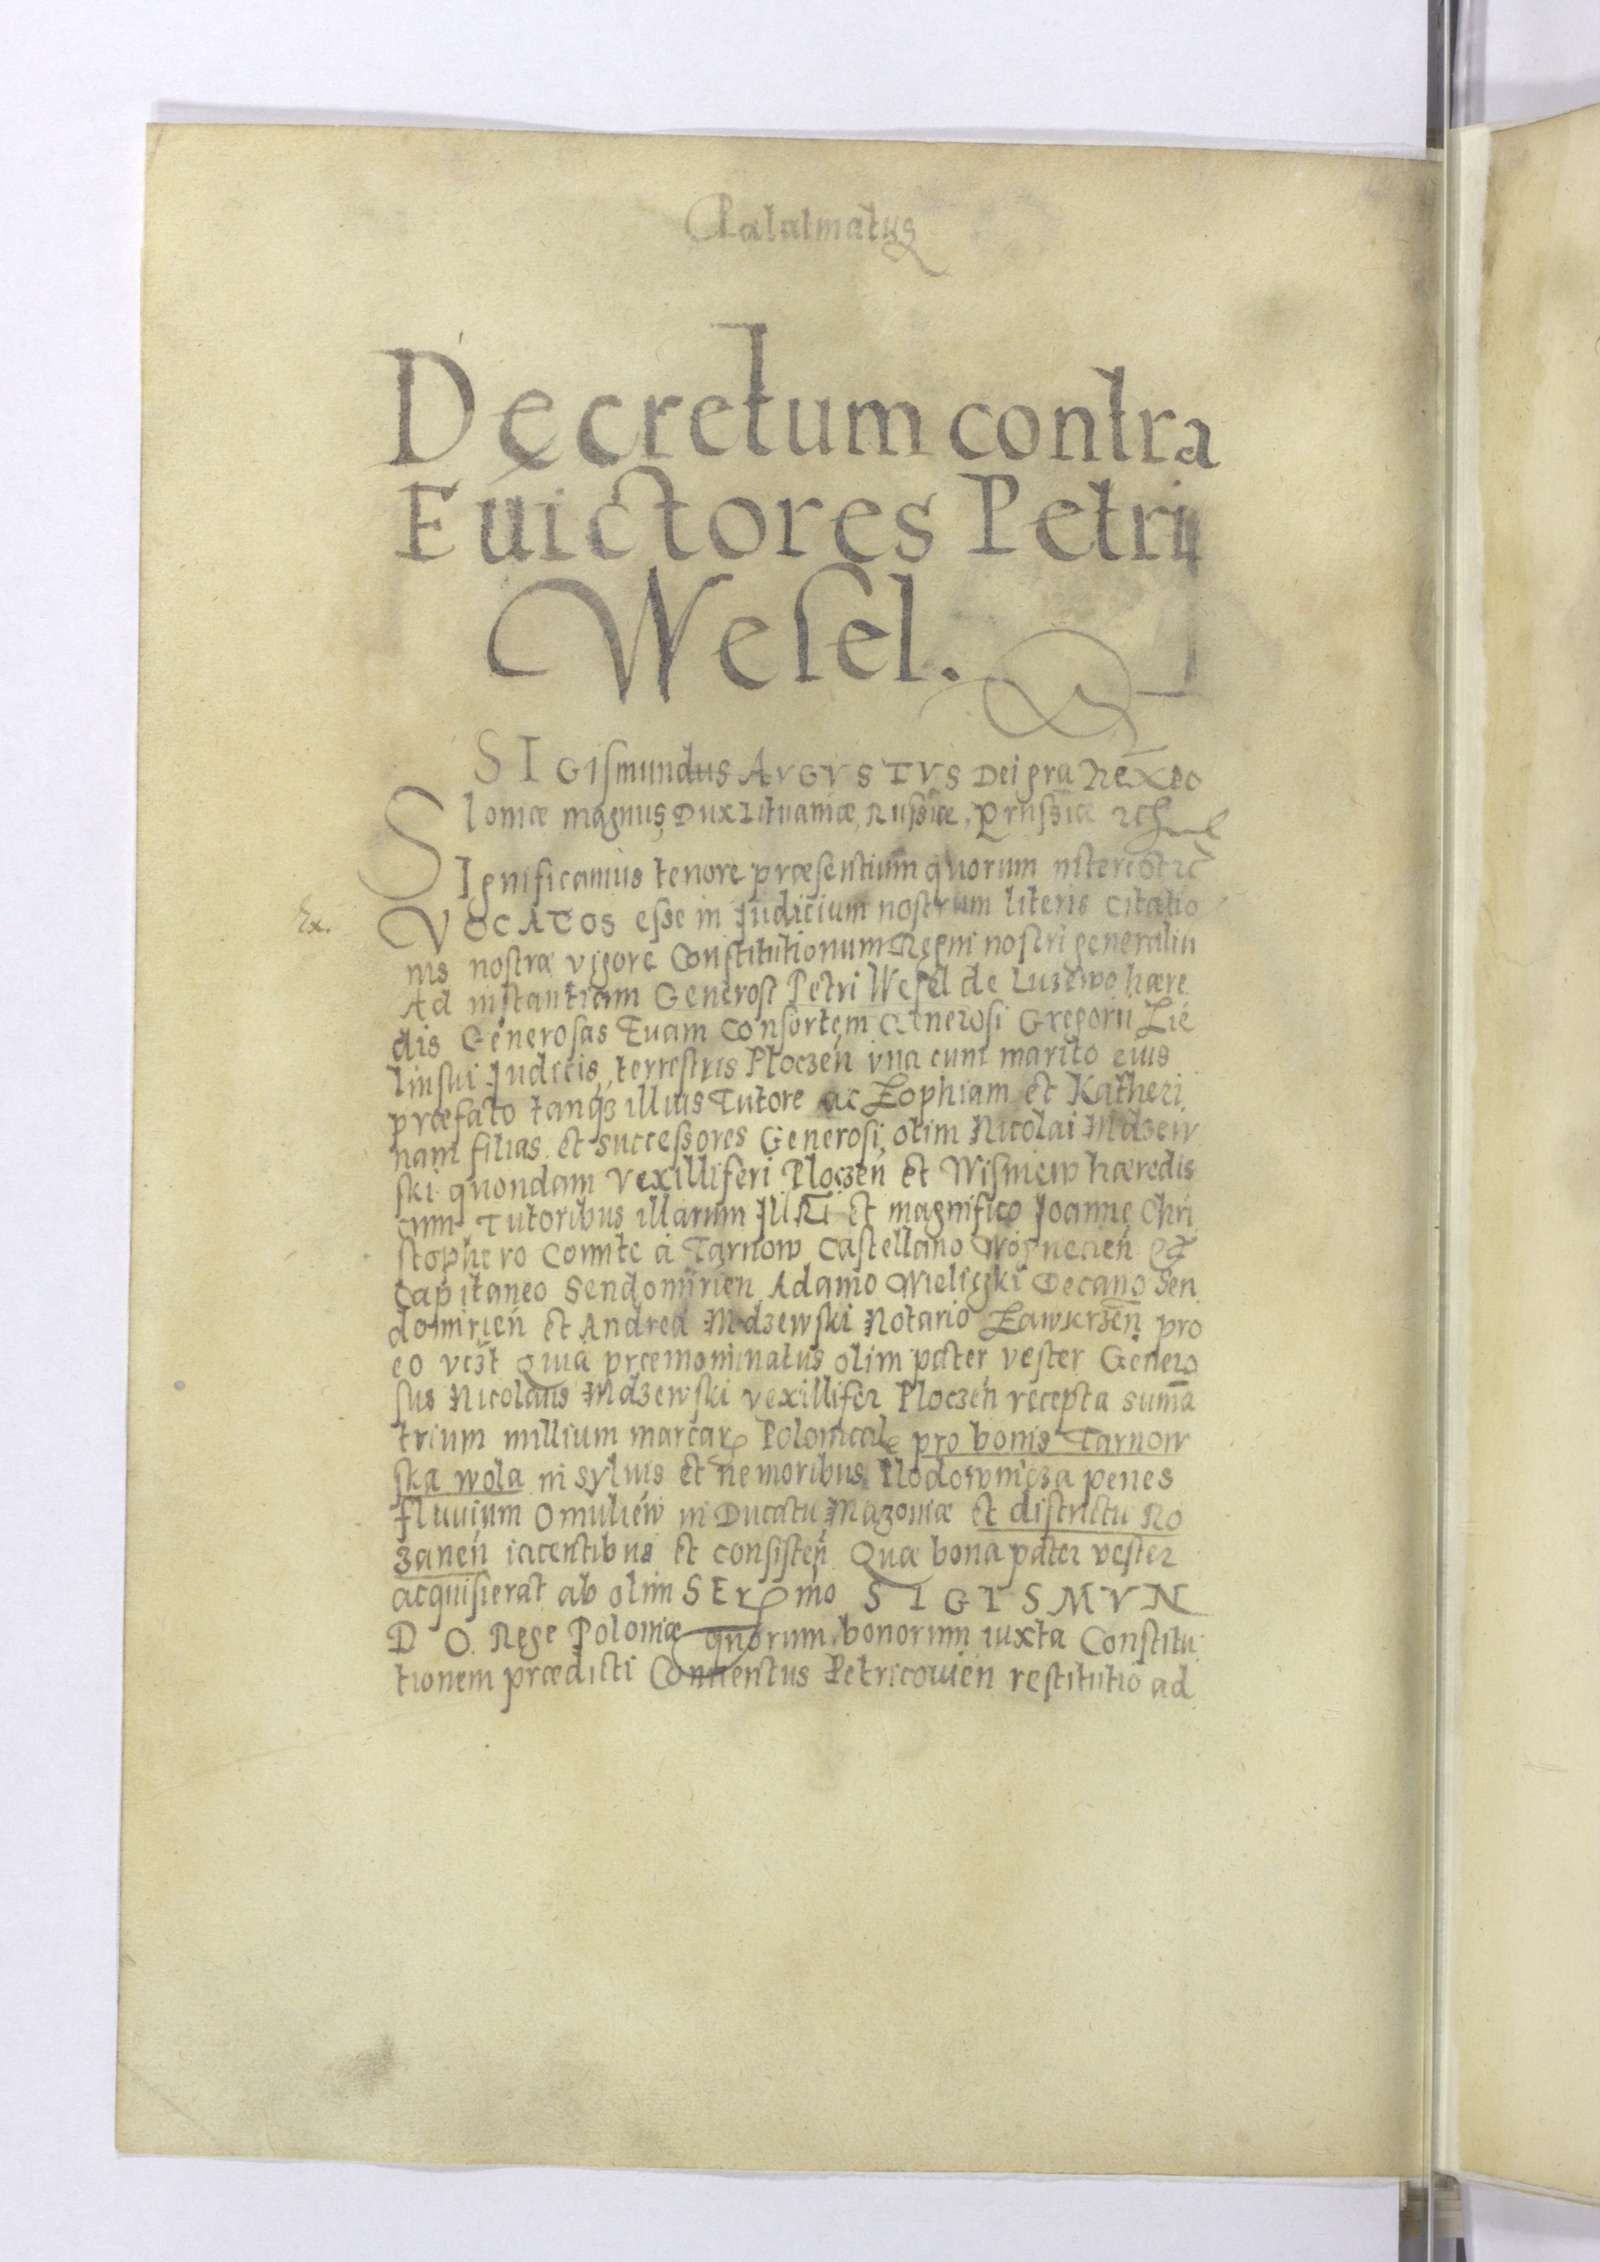 Palatinatus
Decretum contra
Euictores Petri
Wesel.
SIGismundus AVGVSTVS Dei gra Rex Po
loniæ magnus Dux Lituaniæ, Russiæ, Prussiæ
SIgnificamus tenore præsentium quorum interest
Ex.
VOCATOS esse in Judicium nostrum literis citatio
nis nostræ vigore Constitutionum Regni nostri generaliu
Ad instantiam Generosi Petri Wesel de Luzewo hære
dis Generosas Euam Consortem Generosi Gregorii Zie
linski Judicis terrestris Ploczeń vna cum marito eius
præfato tanqz illius Tutore ac Zophiam et Katheri
nam filias et successores Generosi olim Nicolai Mdzew
ski quondam Vexilliferi Ploczeń et Wisniew hæredis
cum Tutoribus illarum Illri et magnifico Joanne Chri
stophero Comite à Tarnow Castellano Woynicień et
Capitaneo Sendomirien Adamo Wieliczki Decano Sen
domirień et Andrea Mdzewski Notario Zawkrzeń pro
eo vczt quia præmominatus olim pater vester Genero
sus Nicolaus Mdzewski vexillifer Ploczeń recepta suma
trium millium marcar Polonical pro bonis Tarnow
ska wola in syluis et nemoribus Plodownicza penes
fluuium Omuliew in Ducatu Mazouiæ et districtu Ro
zaneń iacentibus et consisteń Quæ bona pater vester
acquisierat ab olim SEr mo SIGISMVN
DO. Rege Poloniæ quorum bonorum iuxta Constitu
tionem prædicti Conuentus Petricouień restitutio ad